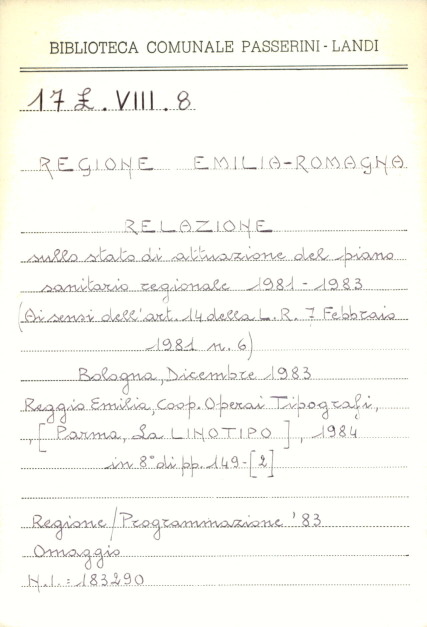 BIBLIOTECA COMUNALE PASSERINI - LANDI
17 £. VIII. 8
REGIONE EMILIA-ROMAGNA
RELAZIONE
sullo stato di attuazione del piano
sanitario regionale 1981 - 1983
(Ai sensi dell'art. 14 della L.R. 7 Febbraio
1981 n. 6)
Bologna, Dicembre 1983
Reggio Emilia, Coop. Operai Tipografi,
, [Parma, La LINOTIPO], 1984
in 8° di pp. 149-[2]
Regione/Programmazione '83
Omaggio
N.I.: 183290